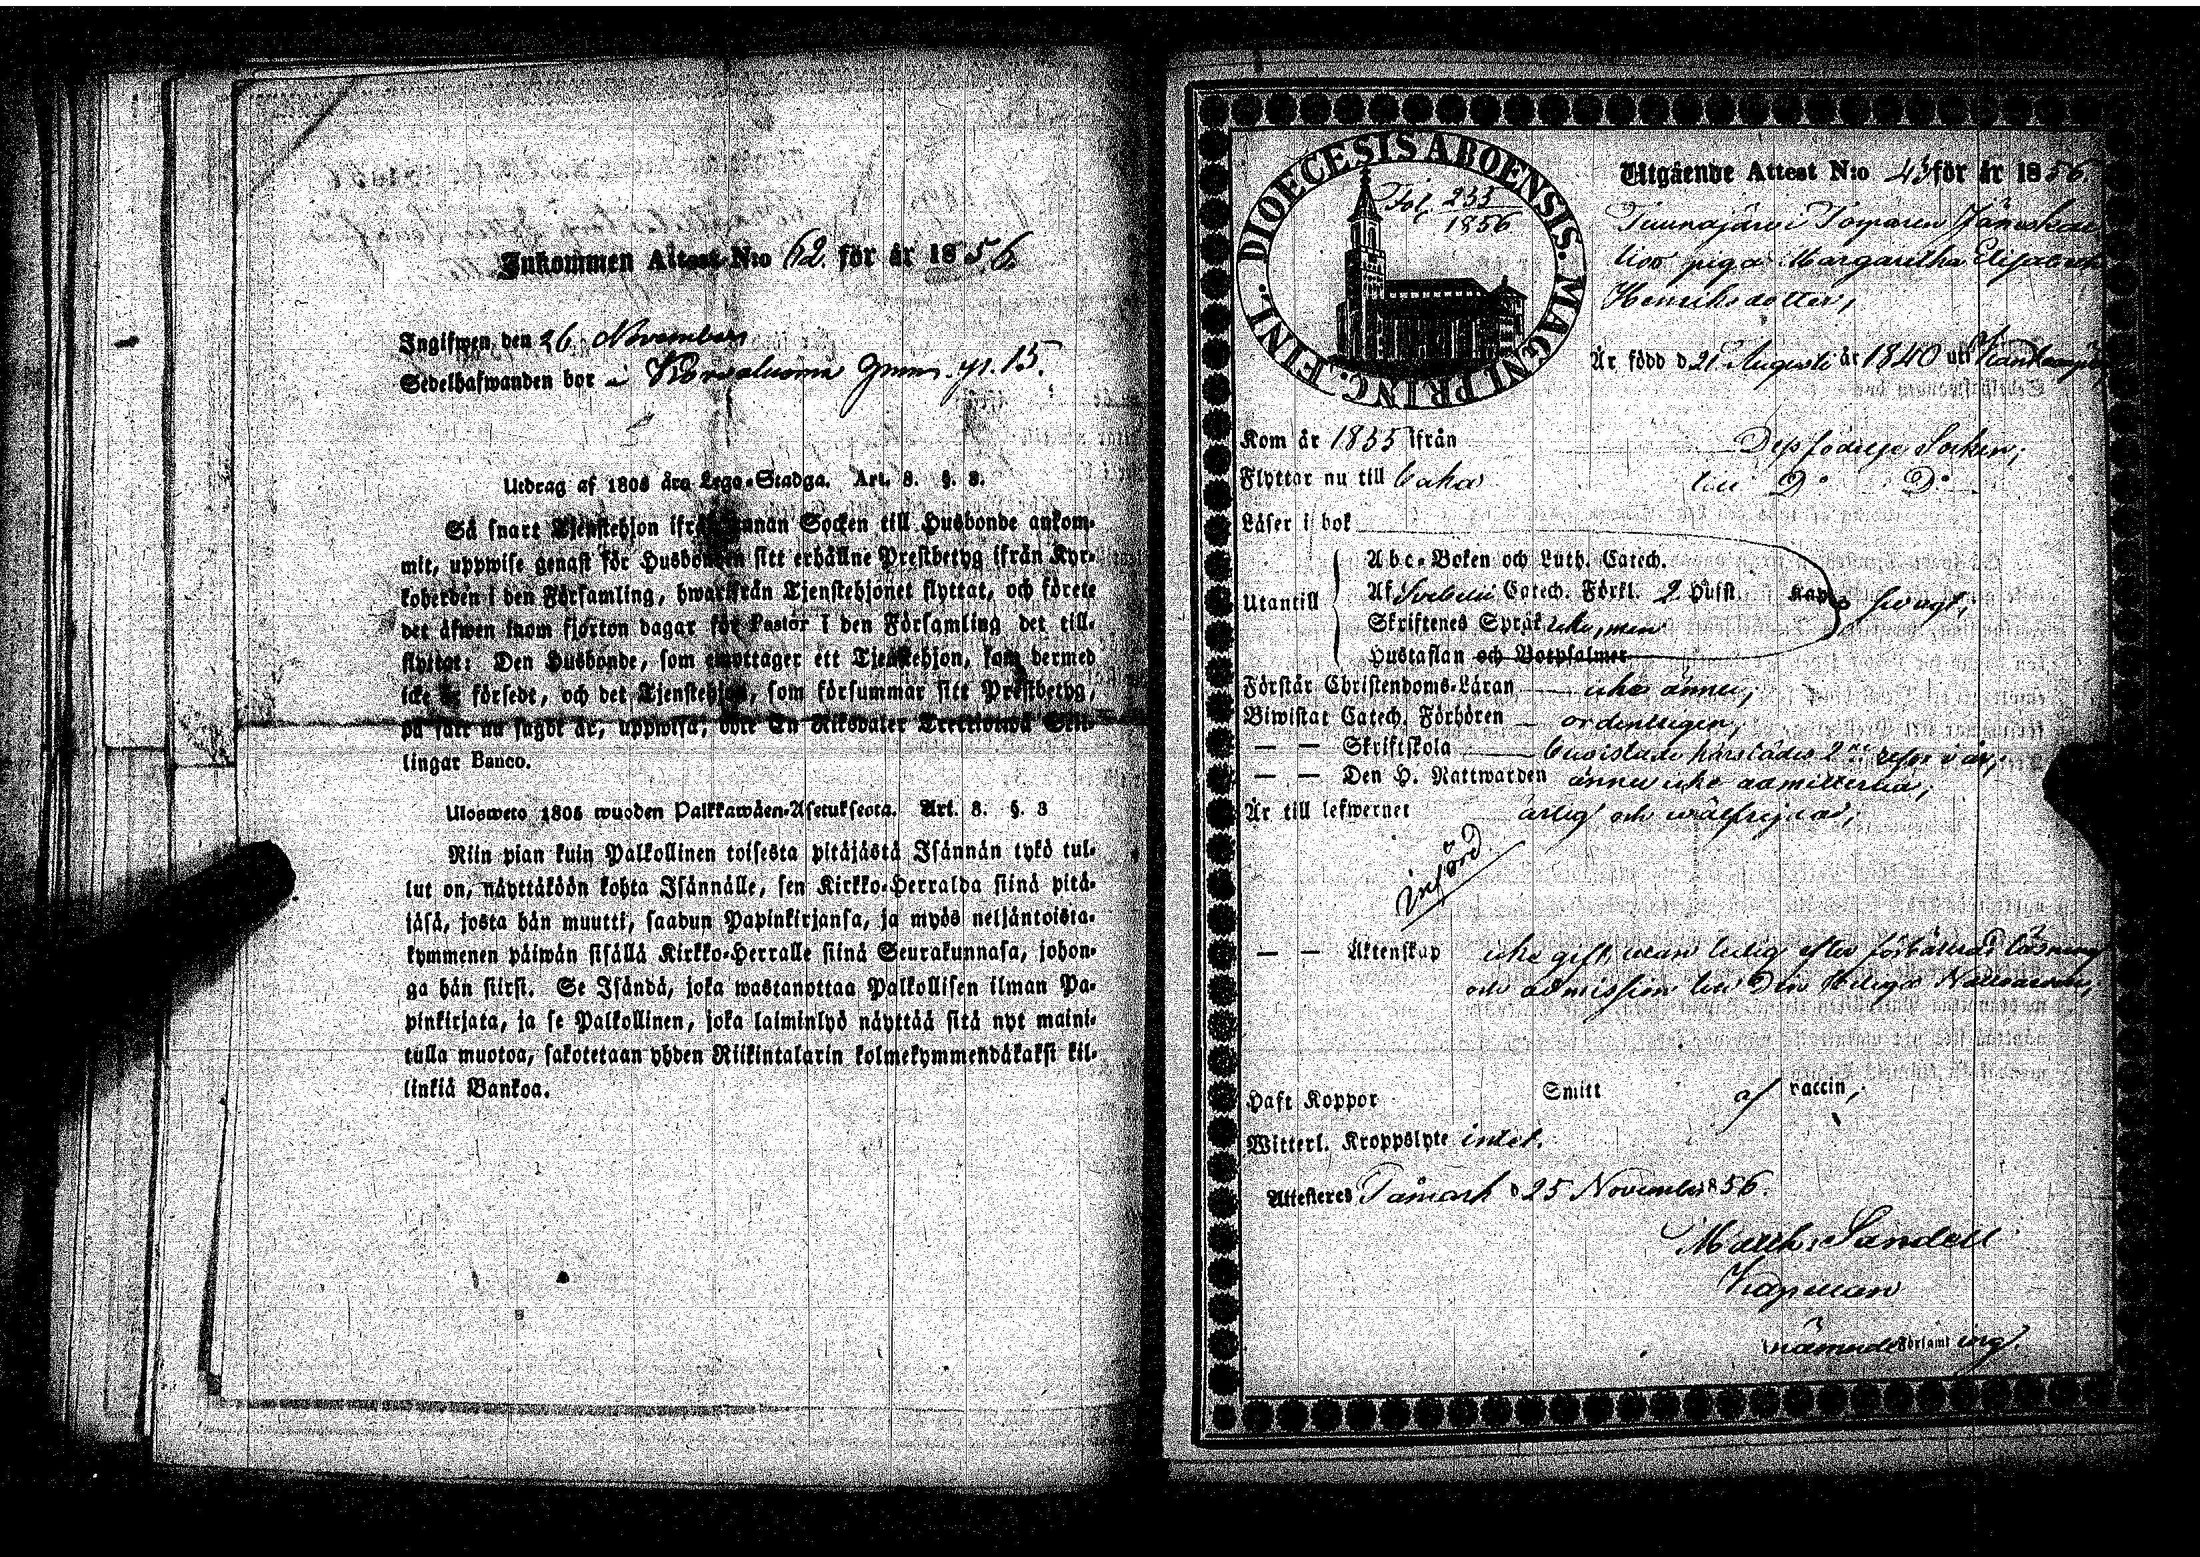 Inkommen Attest N:o 62. för år 1856.
Ingifwen den 26 November
Sedelhafwanden bor i
Utdrag af 1805 års Lego-Stadga. Art. 8. §. 3.
Så snart Tjenstehjon ifrån annan Socken till Husbonde ankom-
mit, uppwise genast för Husbonden sitt erhållne Prestbetyg ifrån Kyr-
koherden i den Församling, hwarifrån Tjenstehjonet flyttat, och förete
det äfwen inom fjorton dagar för Pastor i den Församling det till-
flyttat: Den Husbonde, som emottager ett Tjenstehjon, som dermed
icke är försedt, och det Tjenstehjon, som försummar sitt Prestbetyg,
på sätt nu sagdt är, uppwisa, böte En Riksdaler Trettiotwå Skil-
lingar Banco.
Ulosweto 1805 wuoden Palkkawäen-Asetuksesta. Art. 8. §. 3
Niin pian kuin Palkollinen toisesta pitäjästä Isännän tykö tul-
lut on, näyttäköön kohta Isännälle, sen Kirkko-Herralda siinä pitä-
jäsä, josta hän muutti, saadun Papinkirjansa, ja myös neljäntoista-
kymmenen päiwän sisällä Kirkko-Herralle siinä Seurakunnasa, johon-
ga hän siirsi. Se Isändä, joka wastanottaa Palkollisen ilman Pa-
pinkirjata, ja se Palkollinen, joka laiminlyö näyttää sitä nyt maini-
tulla muotoa, sakotetaan yhden Riikintalarin kolmekymmendäkaksi kil-
linkiä Bankoa.
DIOECESIS ABOENSIS. MAGNI PRINC. FINL.
Fol. 233
1856
Utgående Attest N:o 43 för år 1856.
piga Margaretha Elisabeth
Henriksdotter,
Är född d. 21 Augusti år 1840 uti
Kom år 1855 ifrån Dess födelse Socken;
Flyttar nu till baka till D:o D:o
Läser i bok
Utantill
Abc-Boken och Luth. Catech.
Af Svebelii Catech. Förkl. 2 Hufst. Kap. svagt;
Skriftenes Språk icke, men
Hustaflan och Botpsalmer
Förstår Christendoms-Läran icke ännu;
Biwistat Catech. Förhören ordentligen;
— — Skriftskola bevistade härstädes 2:ne resor i år;
— — Den H. Nattwarden ännu icke admitterad;
Är till lefwernet ärlig och wälfrejdad;
införd
— — Äktenskap icke gift, utan ledig efter förbättrad läsning
och admission till Den Heliga Nattvarden;
Haft Koppor Smitt af vaccin;
Witterl. Kroppslyte intet.
Attesteras Tåmark d. 25 November 1856.
Matth. Sandell
Kapellan
nämnde Församling.